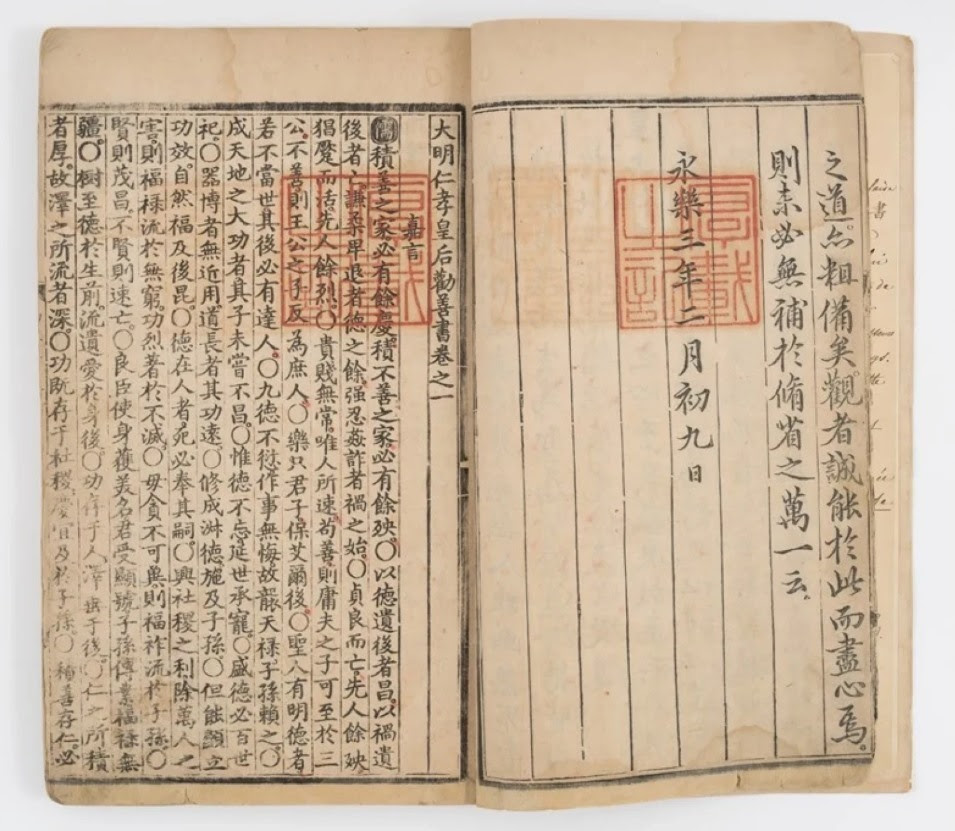 之道亦粗備矣觀者誠能於此而盡心焉。
則未必無補於脩省之萬一云。
永樂三年二月初九日
厚載之記
大明仁孝皇后勸善書卷之一
嘉言
積善之家必有餘慶。積不善之家必有餘殃。○以德遺後者昌。以禍遺
後者亡。謙柔卑退者德之餘。强忍姦詐者禍之始。○貞良而亡。先人餘殃
猖蹷而活。先人餘烈。○貴賤無常。唯人所速。苟善則庸夫之子可至於三
公。不善則王公之子反為庶人。○樂只君子。保艾爾後。○聖人有明德者
若不當世。其後必有達人。○九德不愆。作事無悔。故襲天禄。子孫賴之。○
成天地之大功者。其子未嘗不昌。○惟德不忘。延世承寵。○盛德必百世
祀。○器博者無近用。道長者其功遠。○修成淑德。施及子孫。○但能顯立
功效。自然福及後昆。○德在人者。死必奉其嗣。○興社稷之利。除萬人之
害。則福禄流於無窮。功烈著於不滅。○毋貪不可兾。則福祚流於子孫。○
賢則茂昌。不賢則速亡。○良臣使身獲美名。君受顯號。子孫傳業。福禄無
疆。○樹至德於生前。流遺愛於身後。○功存于人。澤垂于後。○仁之所積
者厚。故澤之所流者深。○功既存于社稷。慶宜及於子孫。○積善存仁。必